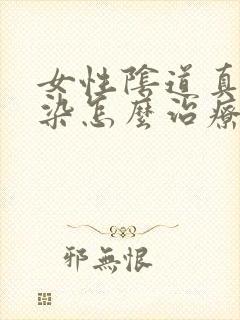 女性陰道真
染怎麼治療
邪無恨